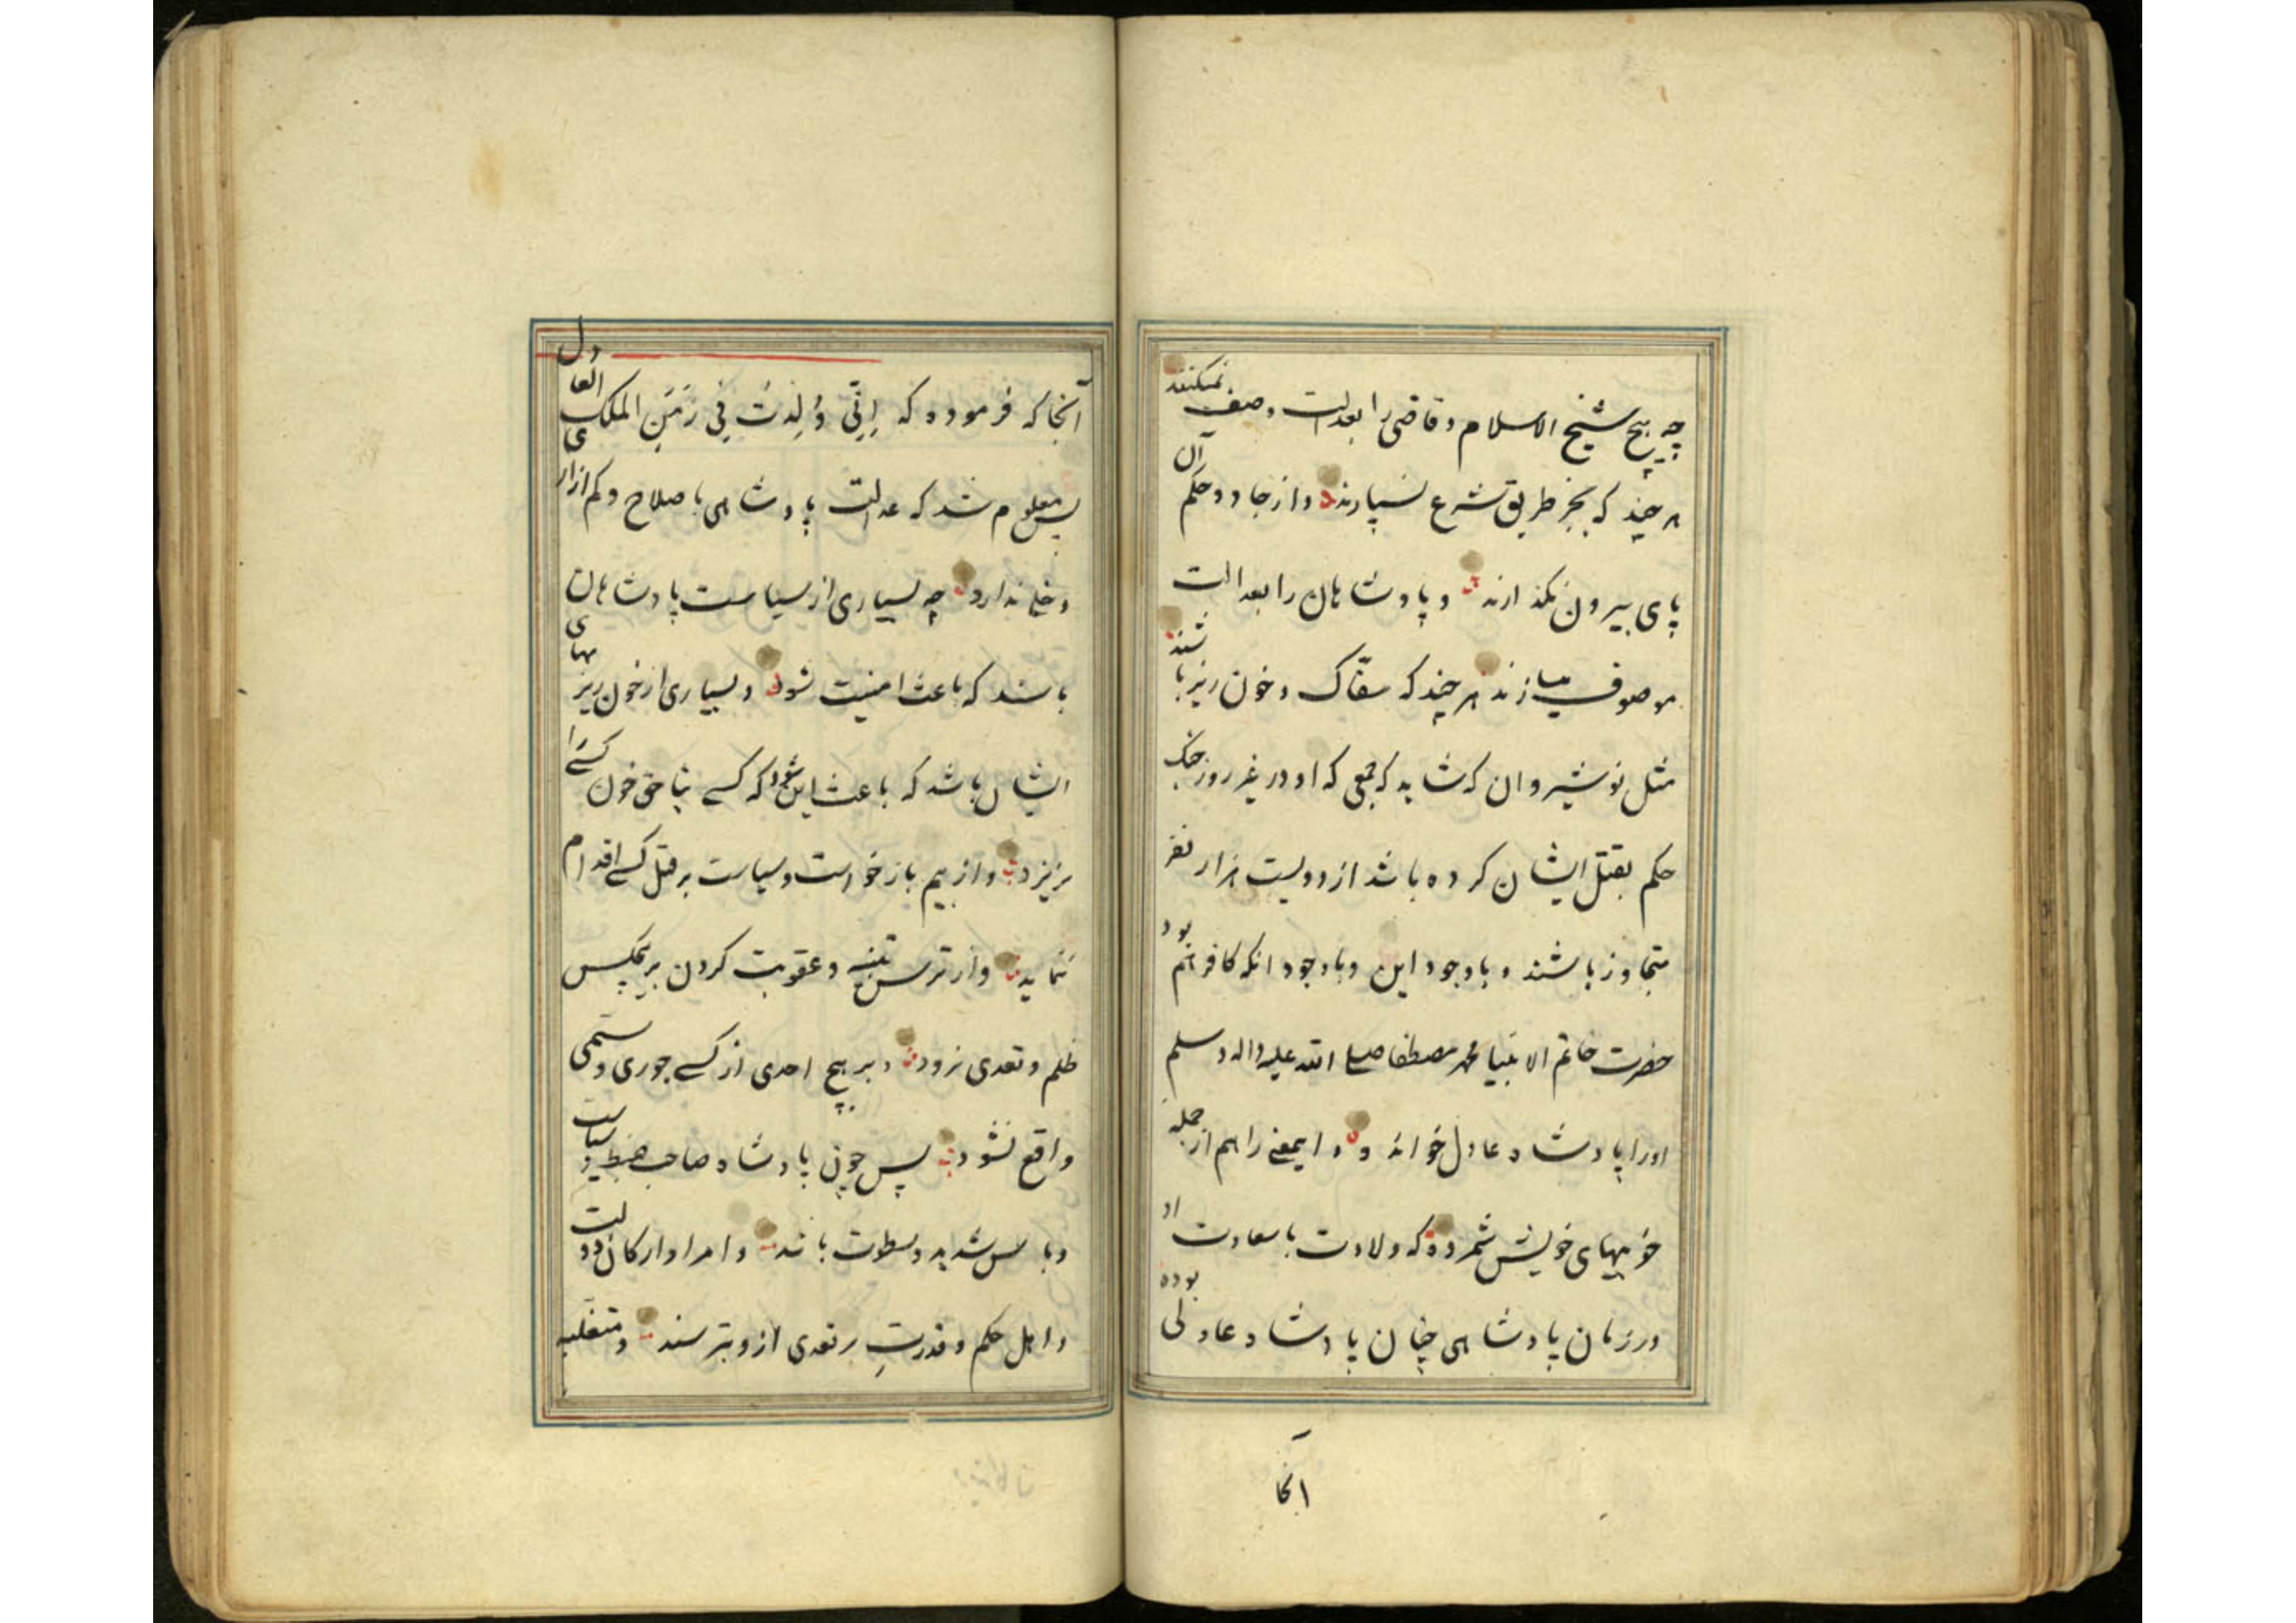 چه هیچ شیخ الاسلام و قاضی را بعدالت وصف نمیکنند
هر چند که بجز طریق شرع نسپارند و از جاده حکم آن
پای بیرون نگذارند و پادشاهان را بعدالت
موصوف میسازند هر چند که سفّاک و خون ریز باشند
مثل نوشیروان که شاید که جمعی که او در غیر روز جنک
حکم بقتل ایشان کرده باشد از دویست هزار نفر
متجاوز باشند و باوجود این و باوجود انکه کافر هم بود
حضرت خاتم الانبیا محمد مصطفا صلی الله علیه واله وسلم
اورا پادشاه عادل خوانده و اینمعنی را هم از جمله
خوبیهای خویش شمرده که ولادت با سعادت او
در زمان پادشاهی چنان پادشاه عادلی بوده
انجا
آنجا که فرموده که اِنّی وُلِدتُ فِی زَمَنِ الملک العادل
پس معلوم شد که عدالت پادشاهی با صلاح و کم ازاری
دخلی ندارد چه بسیاری از سیاست پادشاهان
باشد که باعث امنیت شود و بسیاری از خون ریزیهای
ایشان باشد که باعث این شود که کسی بناحق خون کسی را
نریزد و از بیم بازخواست و سیاست بر قتل کسی اقدام
ننماید و از ترس تنبیه و عقوبت کردن بر هیچکس
ظلم و تعدی نرود و بر هیچ احدی از کسی جوری و ستمی
واقع نشود پس چون پادشاه صاحب ضبط و سیاست
و با باس شدید و سطوت باشد و امرا و ارکان دولت
و اهل حکم و قدرتِ بر تعدی ازو بترسند و متغلبه